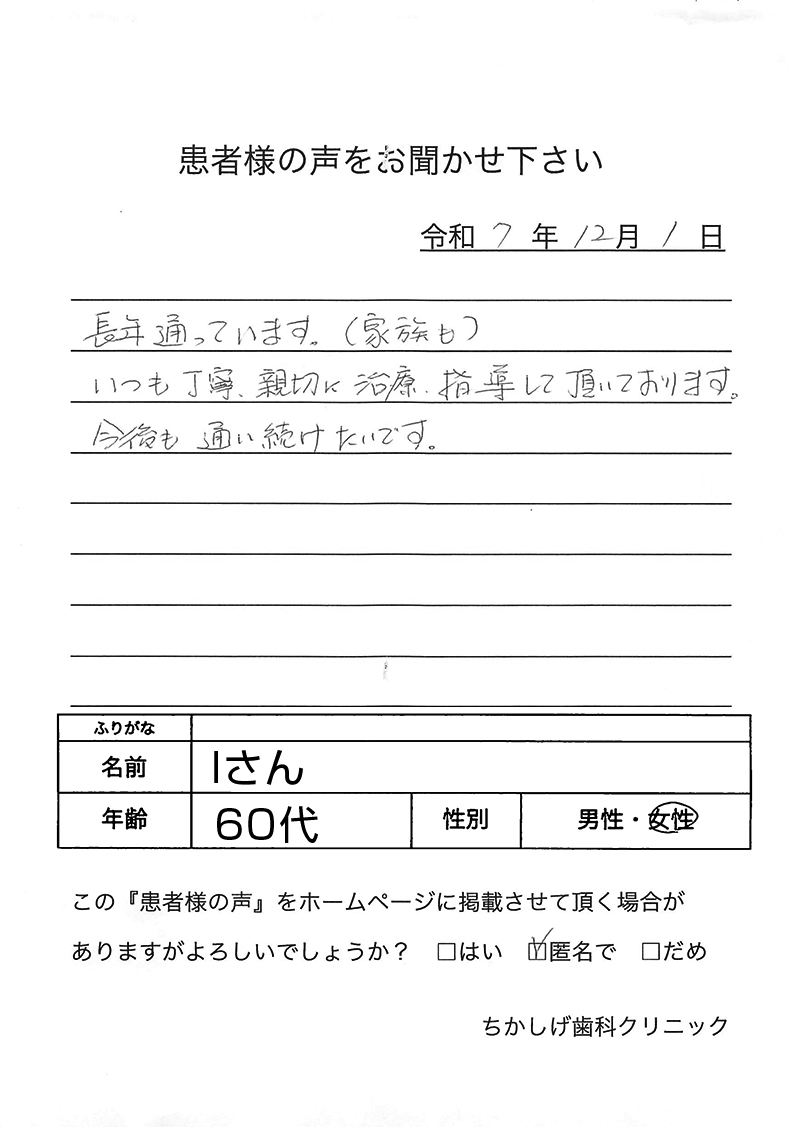 患者様の声をお聞かせ下さい
令和 7 年 12月 1 日
長年通っています。(家族も)
いつも丁寧、親切に治療、指導して頂いております。
今後も通い続けたいです。
ふりがな
名前 Iさん
年齢 60代 性別 男性・女性
この『患者様の声』をホームページに掲載させて頂く場合が
ありますがよろしいでしょうか? □はい ☑匿名で □だめ
ちかしげ歯科クリニック